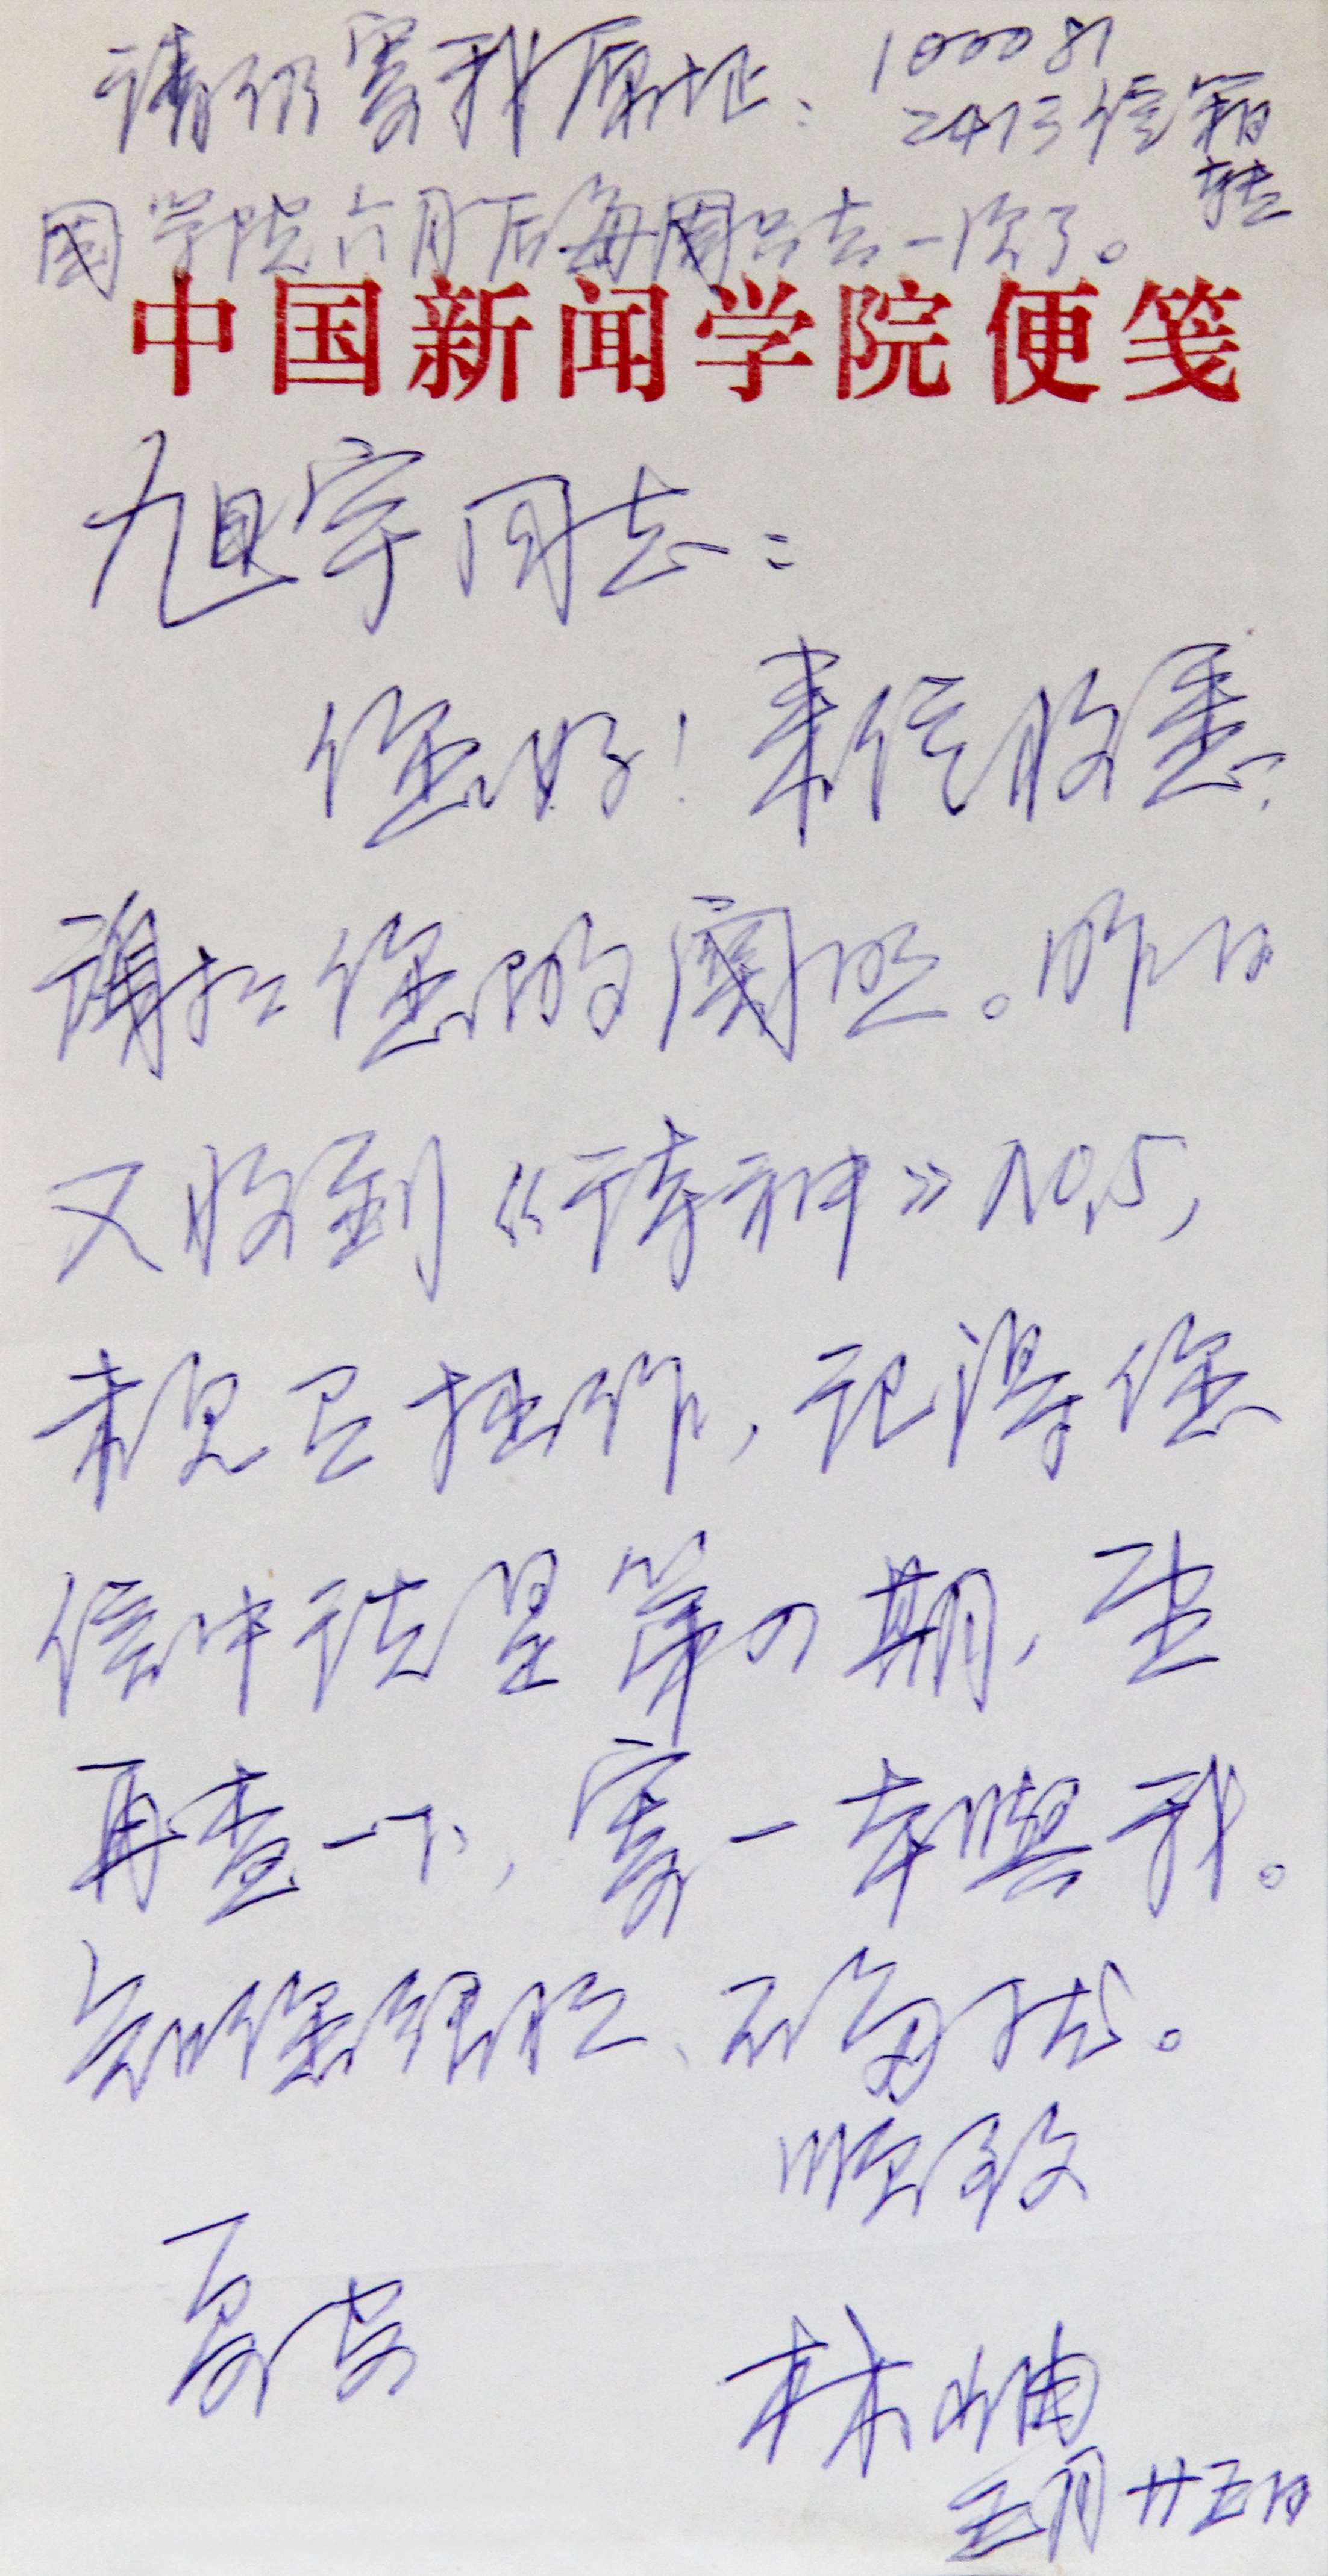 请仍寄我原址：100081
2413信箱
转
因学院六月后每周只去一次了。
中国新闻学院便笺
旭宇同志：
您好！来信收悉，
谢谢您的关照。昨日
又收到《诗神》No.5，
未见已拙作，记得您
信中说是第四期，望
再查一下，寄一本与我。
知您很忙，不多扰。
顺致
夏安
林岫
五月廿五日